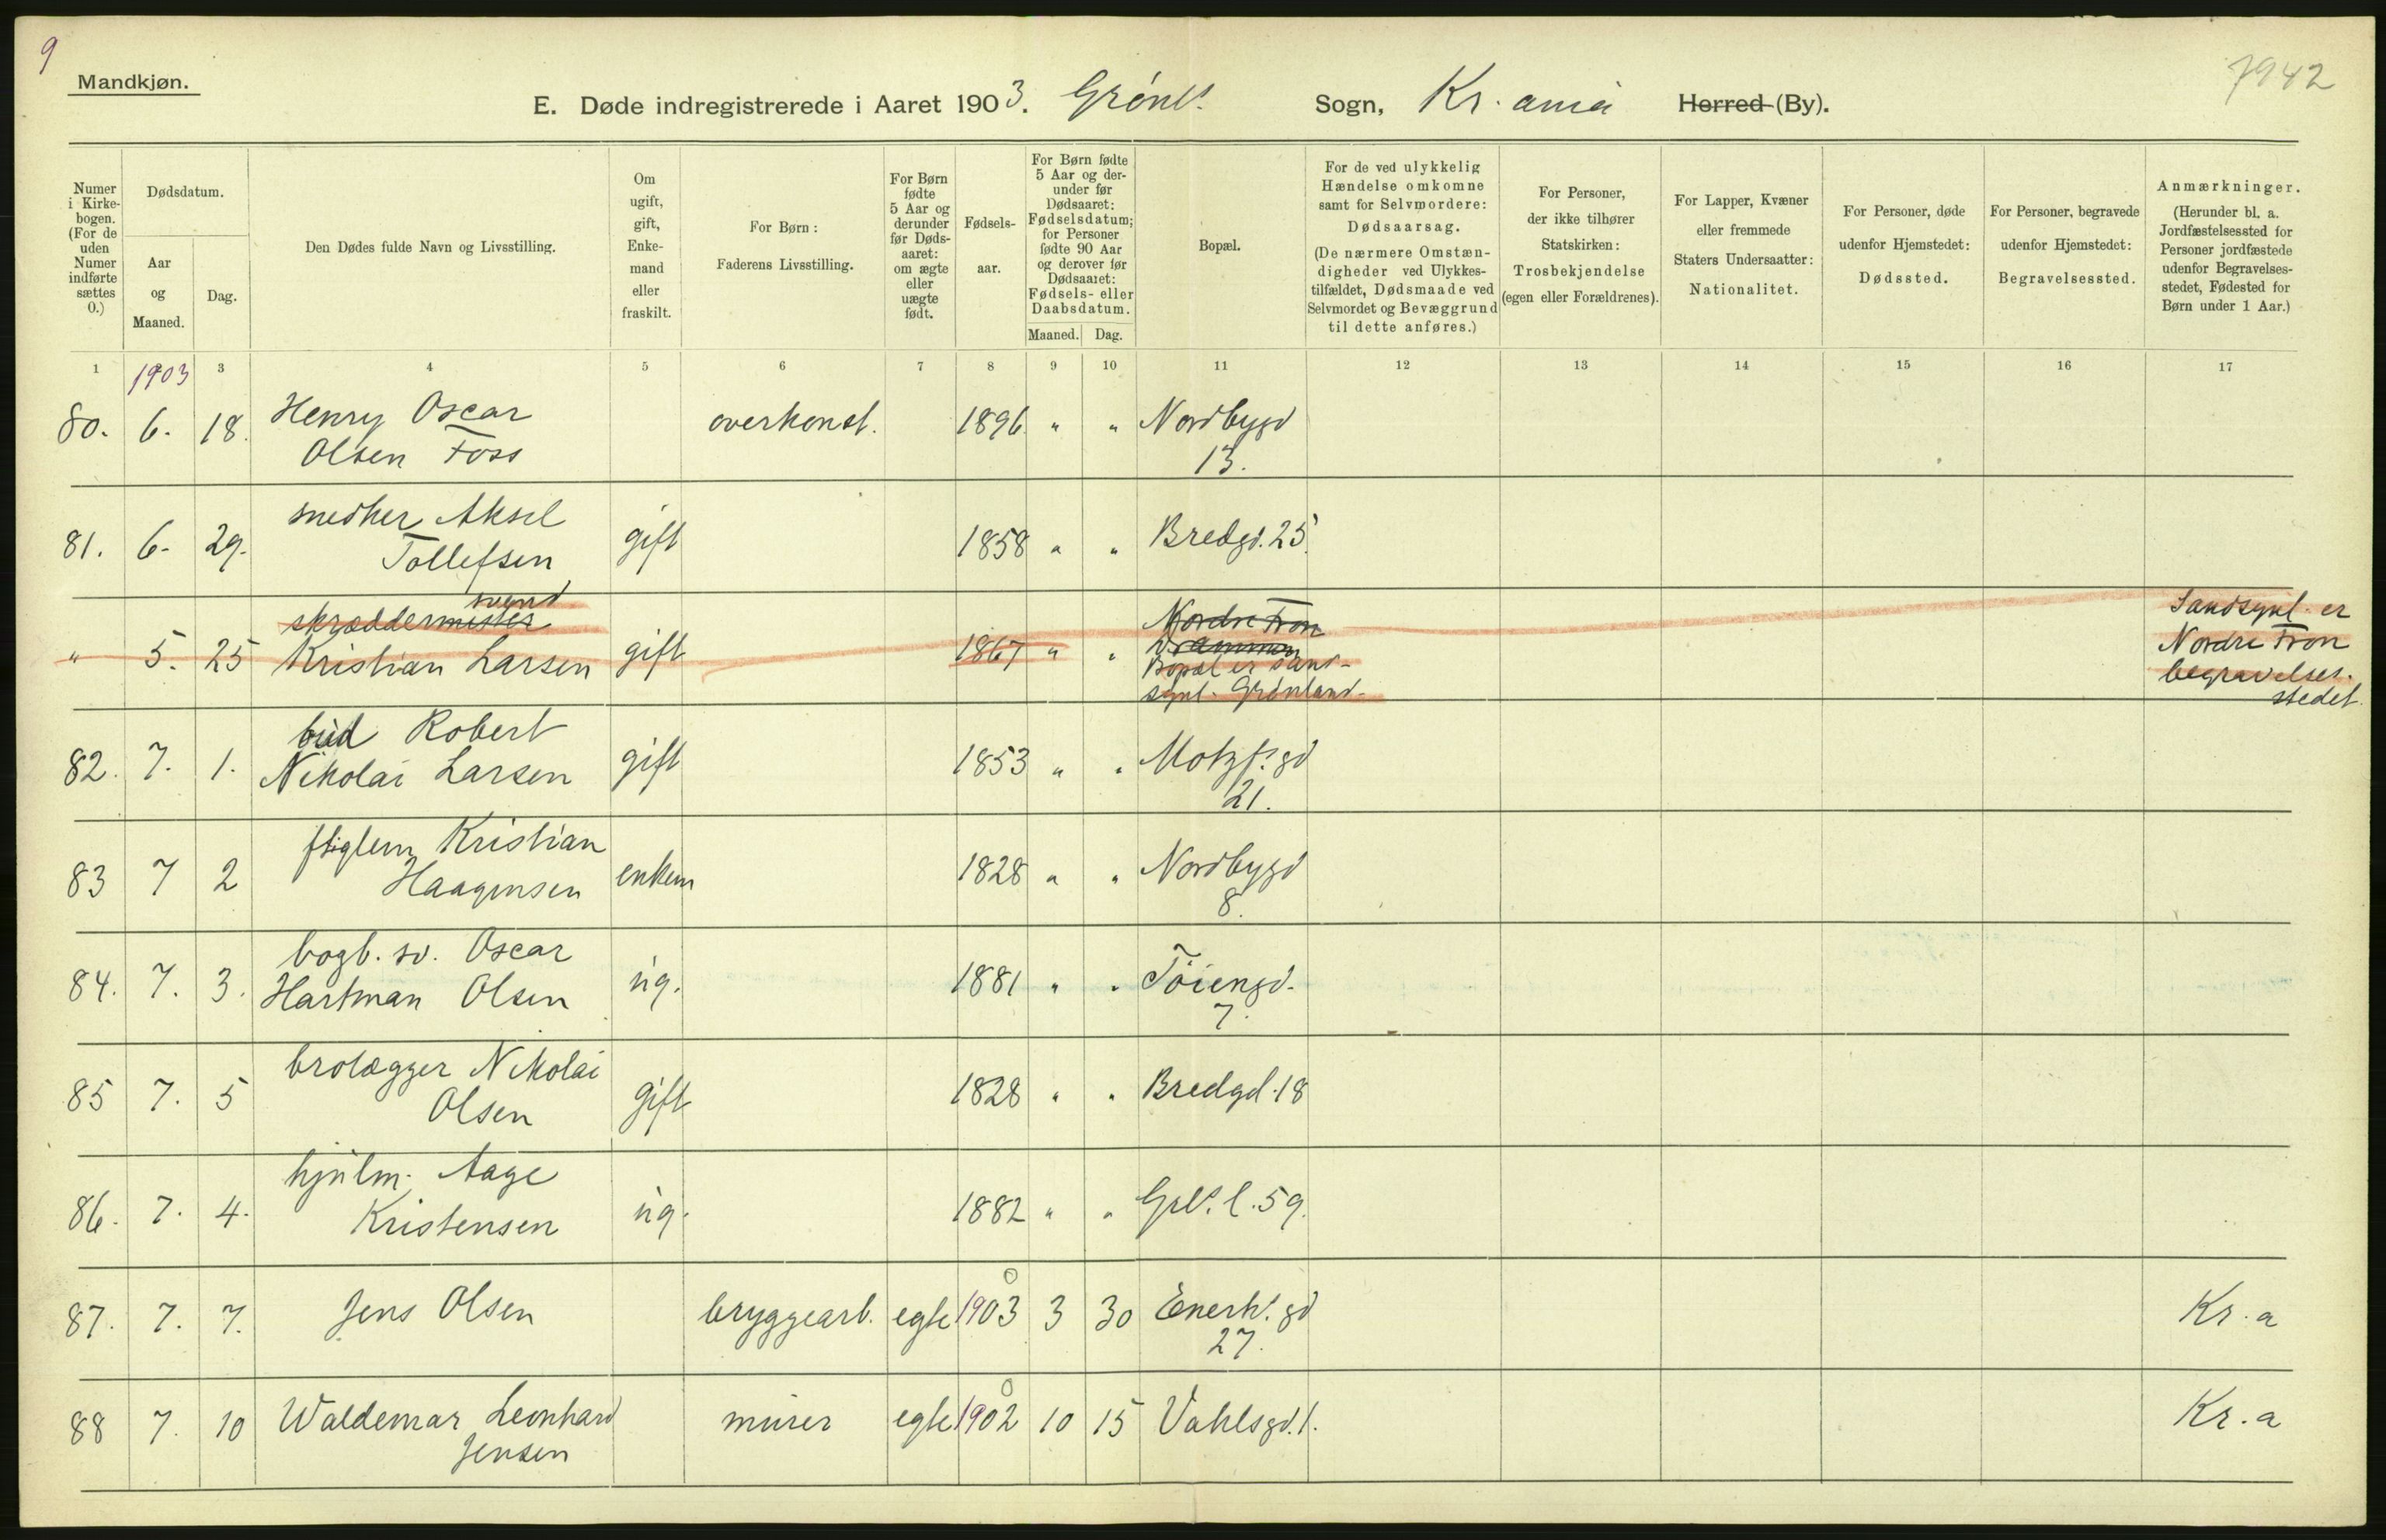 9
Mandkjøn.
7942
E. Døde indregistrerede i Aaret 1903. Grönl. Sogn, Kr.ania Herred (By).
Numer i Kirkebogen. (For de uden Numer indførte sættes 0.)
Dødsdatum.
Aar og Maaned.
Dag.
Den Dødes fulde Navn og Livsstilling.
Om ugift, gift, Enkemand eller fraskilt.
For Børn: Faderens Livsstilling.
For Børn fødte 5 Aar og derunder før Dødsaaret: om ægte eller uægte født.
Fødselsaar.
For Børn fødte 5 Aar og derunder før Dødsaaret: Fødselsdatum; for Personer fødte 90 Aar og derover før Dødsaaret: Fødsels- eller Daabsdatum.
Maaned. Dag.
Bopæl.
For de ved ulykkelig Hændelse omkomne samt for Selvmordere: Dødsaarsag. (De nærmere Omstændigheder ved Ulykkestilfældet, Dødsmaade ved Selvmordet og Bevæggrund til dette anføres.)
For Personer, der ikke tilhører Statskirken: Trosbekjendelse (egen eller Forældrenes).
For Lapper, Kvæner eller fremmede Staters Undersaatter: Nationalitet.
For Personer, døde udenfor Hjemstedet: Dødssted.
For Personer, begravede udenfor Hjemstedet: Begravelsessted.
Anmærkninger. (Herunder bl. a. Jordfæstelsessted for Personer jordfæstede udenfor Begravelsesstedet, Fødested for Børn under 1 Aar.)
1 3 4 5 6 7 8 9 10 11 12 13 14 15 16 17
1903
80. 6. 18. Henry Oscar overkonst. 1896 " " Nordbygd
Olsen Foss 13.
81. 6. 29. snedker Aksel gift 1858 " " Bredgd. 25.
Tollefsen
svend
skræddermester Nordre Fron Sandsynl. er
" 5. 25 Kristian Larsen gift 1867 " " Drammen Nordre Fron
Bopæl er sand- begravelses-
synl. Grönland. stedet.
82. 7. 1. bud Robert gift 1853 " " Motzf. gd
Nikolai Larsen 21.
83 7 2 Kristian enkem 1828 " " Nordbygd
Haagensen 8.
84. 7. 3. bogb. sv. Oscar ug. 1881 " " Töiengd.
Hartman Olsen 7.
85 7. 5 brolægger Nikolai gift 1828 " " Bredgd. 18
Olsen
86. 7. 4. hjulm. Aage ug. 1882 " " Grl. l. 59.
Kristensen
0
87. 7. 7. Jens Olsen bryggearb. egte 1903 3 30 Enerh. gd Kr.a
27.
0
88 7. 10 Waldemar Leonhard murer egte 1902 10 15 Vahlsgd. 1. Kr.a
Jensen